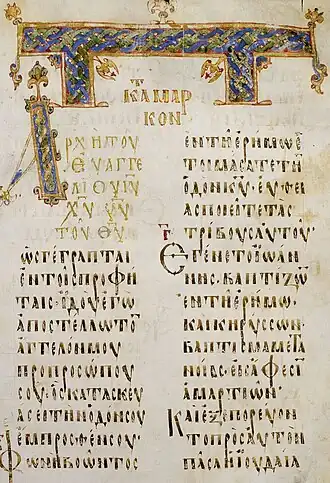 ΚΑ ΜΑΡ
ΚΟΝ
ΑΡΧΗ ΤΟΥ
ΕΥΑΓΓΕ
ΛΙΟΥ ΙΥ
ΧΥ ΥΥ
ΤΟΥ ΘΥ
ΩΣ ΓΕΓΡΑΠΤΑΙ
ΕΝ ΤΟΙΣ ΠΡΟΦΗ
ΤΑΙΣ· ΙΔΟΥ ΕΓΩ
ΑΠΟΣΤΕΛΛΩ ΤΟΝ
ΑΓΓΕΛΟΝ ΜΟΥ
ΠΡΟ ΠΡΟΣΩΠΟΥ
ΣΟΥ· ΟΣ ΚΑΤΑΣΚΕΥ
ΑΣΕΙ ΤΗΝ ΟΔΟΝ ΣΟΥ
ΕΜΠΡΟΣΘΕΝ ΣΟΥ·
ΦΩΝΗ ΒΟΩΝΤΟΣ
ΕΝ ΤΗ ΕΡΗΜΩ· Ε
ΤΟΙΜΑΣΑΤΕ ΤΗΝ
ΟΔΟΝ ΚΥ· ΕΥΘΕΙ
ΑΣ ΠΟΙΕΙΤΕ ΤΑΣ
ΤΡΙΒΟΥΣ ΑΥΤΟΥ·
ΕΓΕΝΕΤΟ ΙΩΑΝ
ΝΗΣ· ΒΑΠΤΙΖΩΝ
ΕΝ ΤΗ ΕΡΗΜΩ·
ΚΑΙ ΚΗΡΥΣΣΩΝ
ΒΑΠΤΙΣΜΑ ΜΕΤΑ
ΝΟΙΑΣ· ΕΙΣ ΑΦΕΣΙΝ
ΑΜΑΡΤΙΩΝ·
ΚΑΙ ΕΞΕΠΟΡΕΥΟΝ
ΤΟ ΠΡΟΣ ΑΥΤΟΝ
ΠΑΣΑ Η ΙΟΥΔΑΙΑ